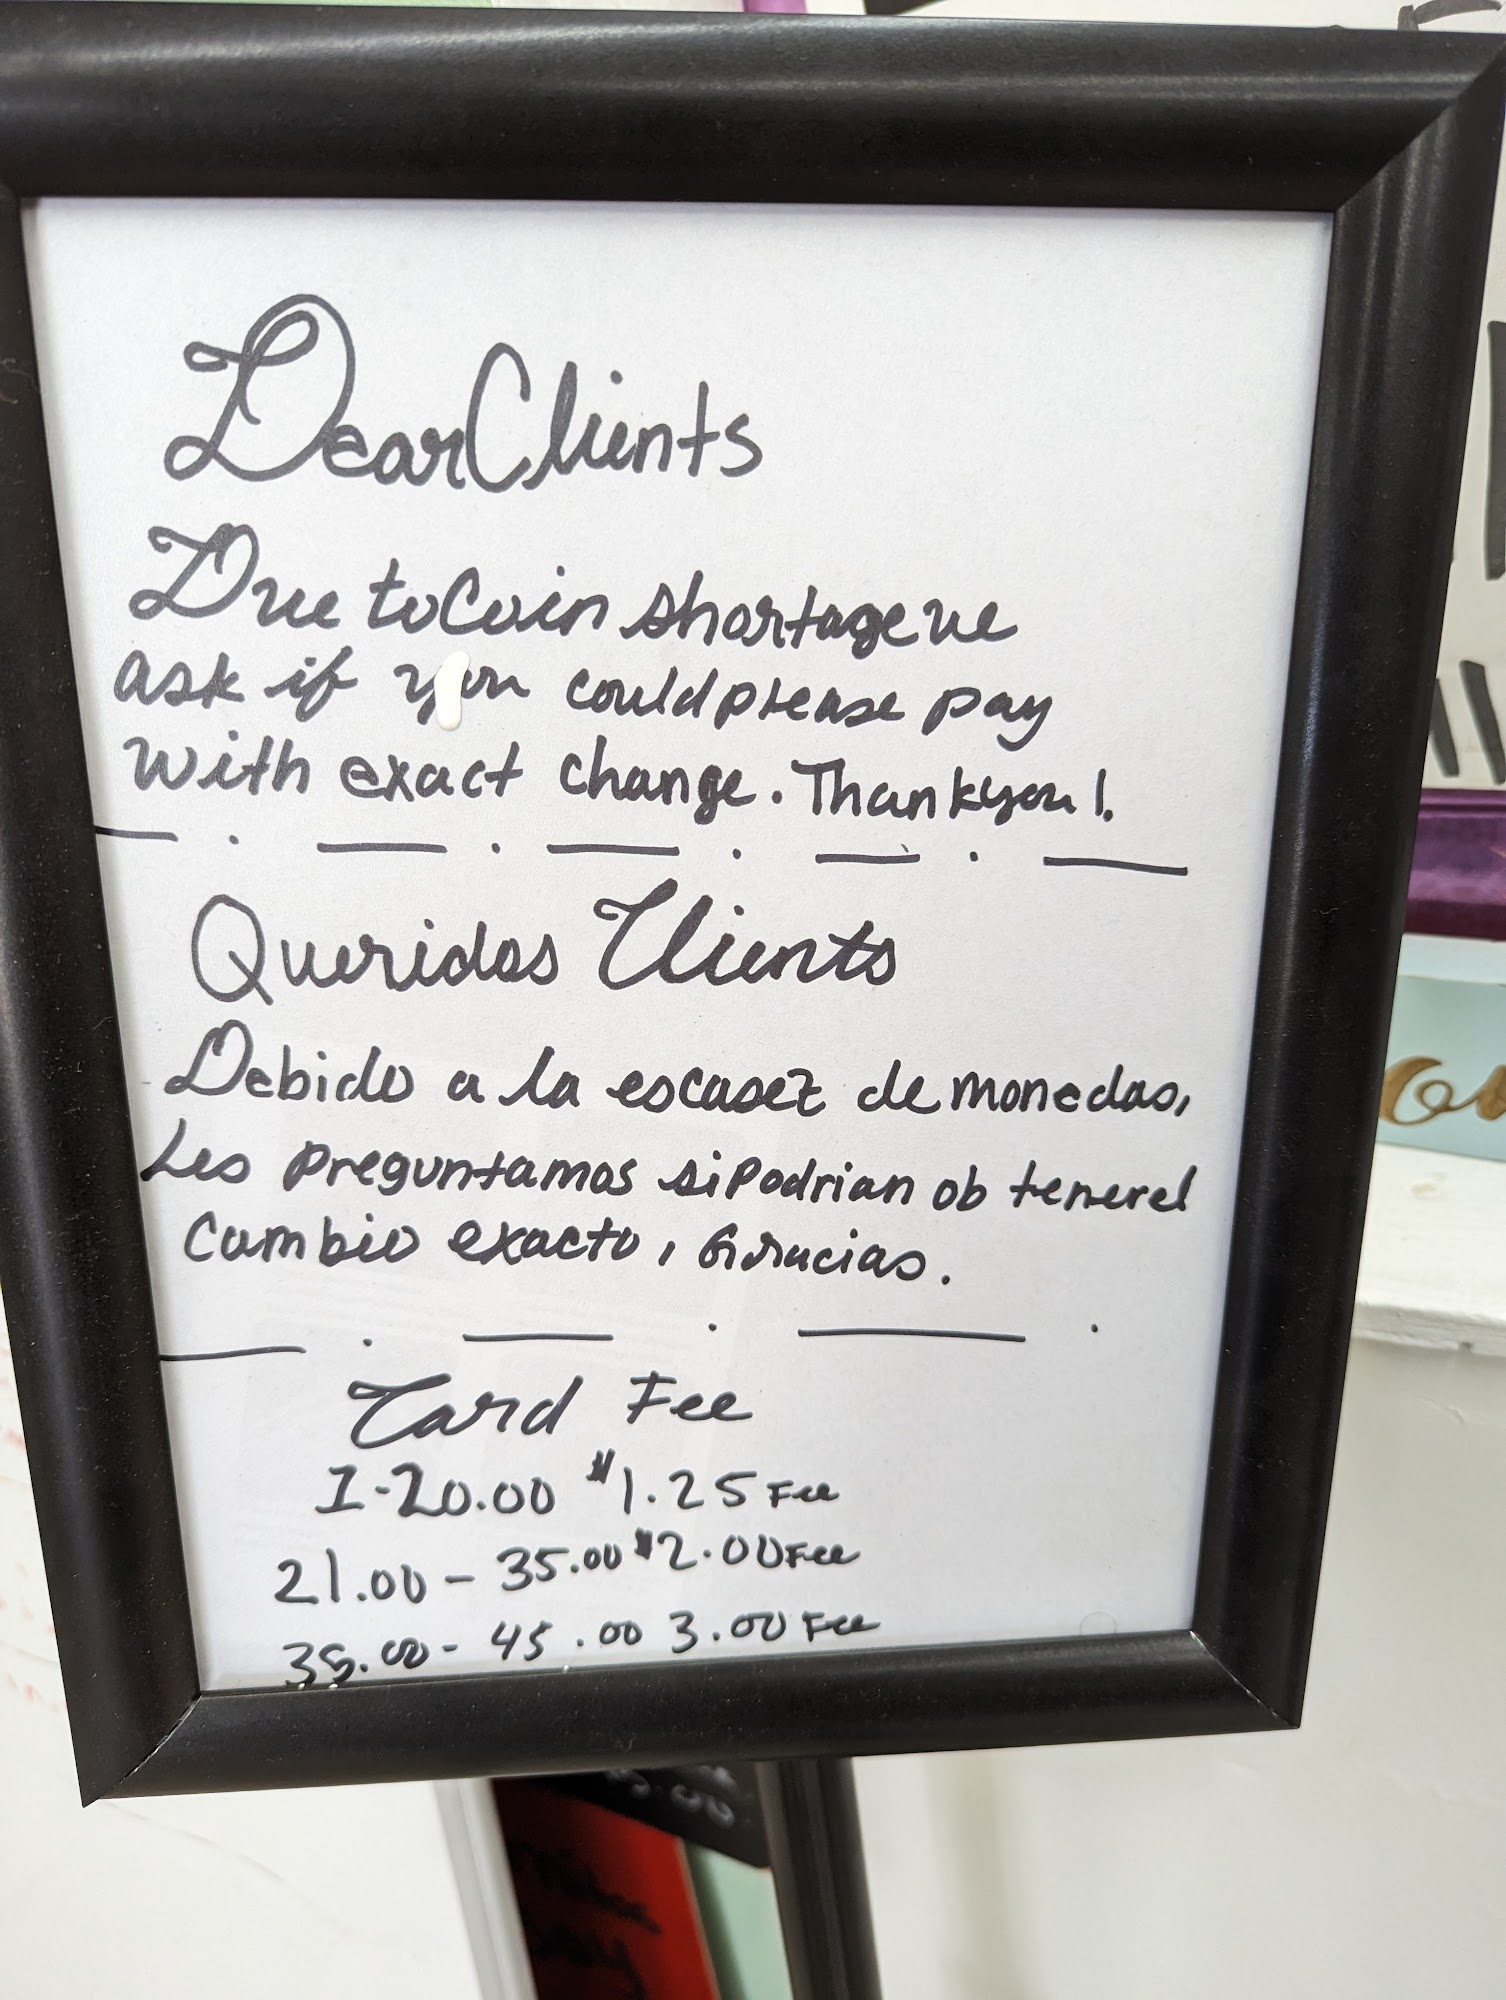 Dear Clients
Due to Coin shortage we
ask if you could please pay
with exact change. Thank you!.
Queridos Clients
Debido a la escasez de monedas,
Les preguntamos si Podrian ob tener el
Cambio exacto, Gracias.
Card Fee
1-20.00 $1.25 Fee
21.00 - 35.00 $2.00 Fee
35.00 - 45.00 3.00 Fee